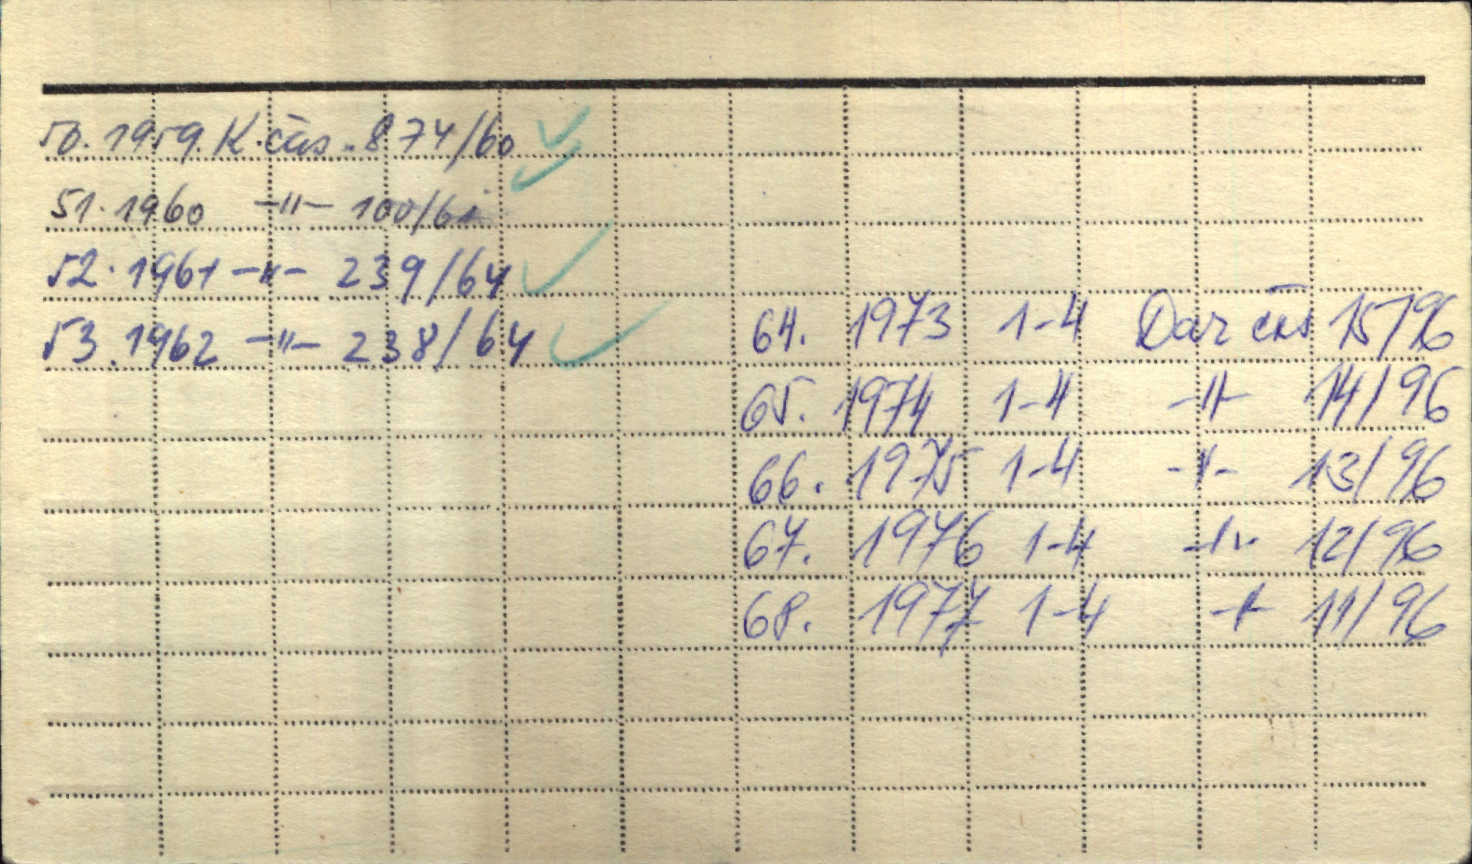 50. 1959. K. čas. 874/60
51. 1960 -"- 100/61
52. 1961 -"- 239/64
53. 1962 -"- 238/64
64. 1973 1-4 Dar čas 15/96
65. 1974 1-4 -"- 14/96
66. 1975 1-4 -"- 13/96
67. 1976 1-4 -"- 12/96
68. 1977 1-4 -"- 11/96